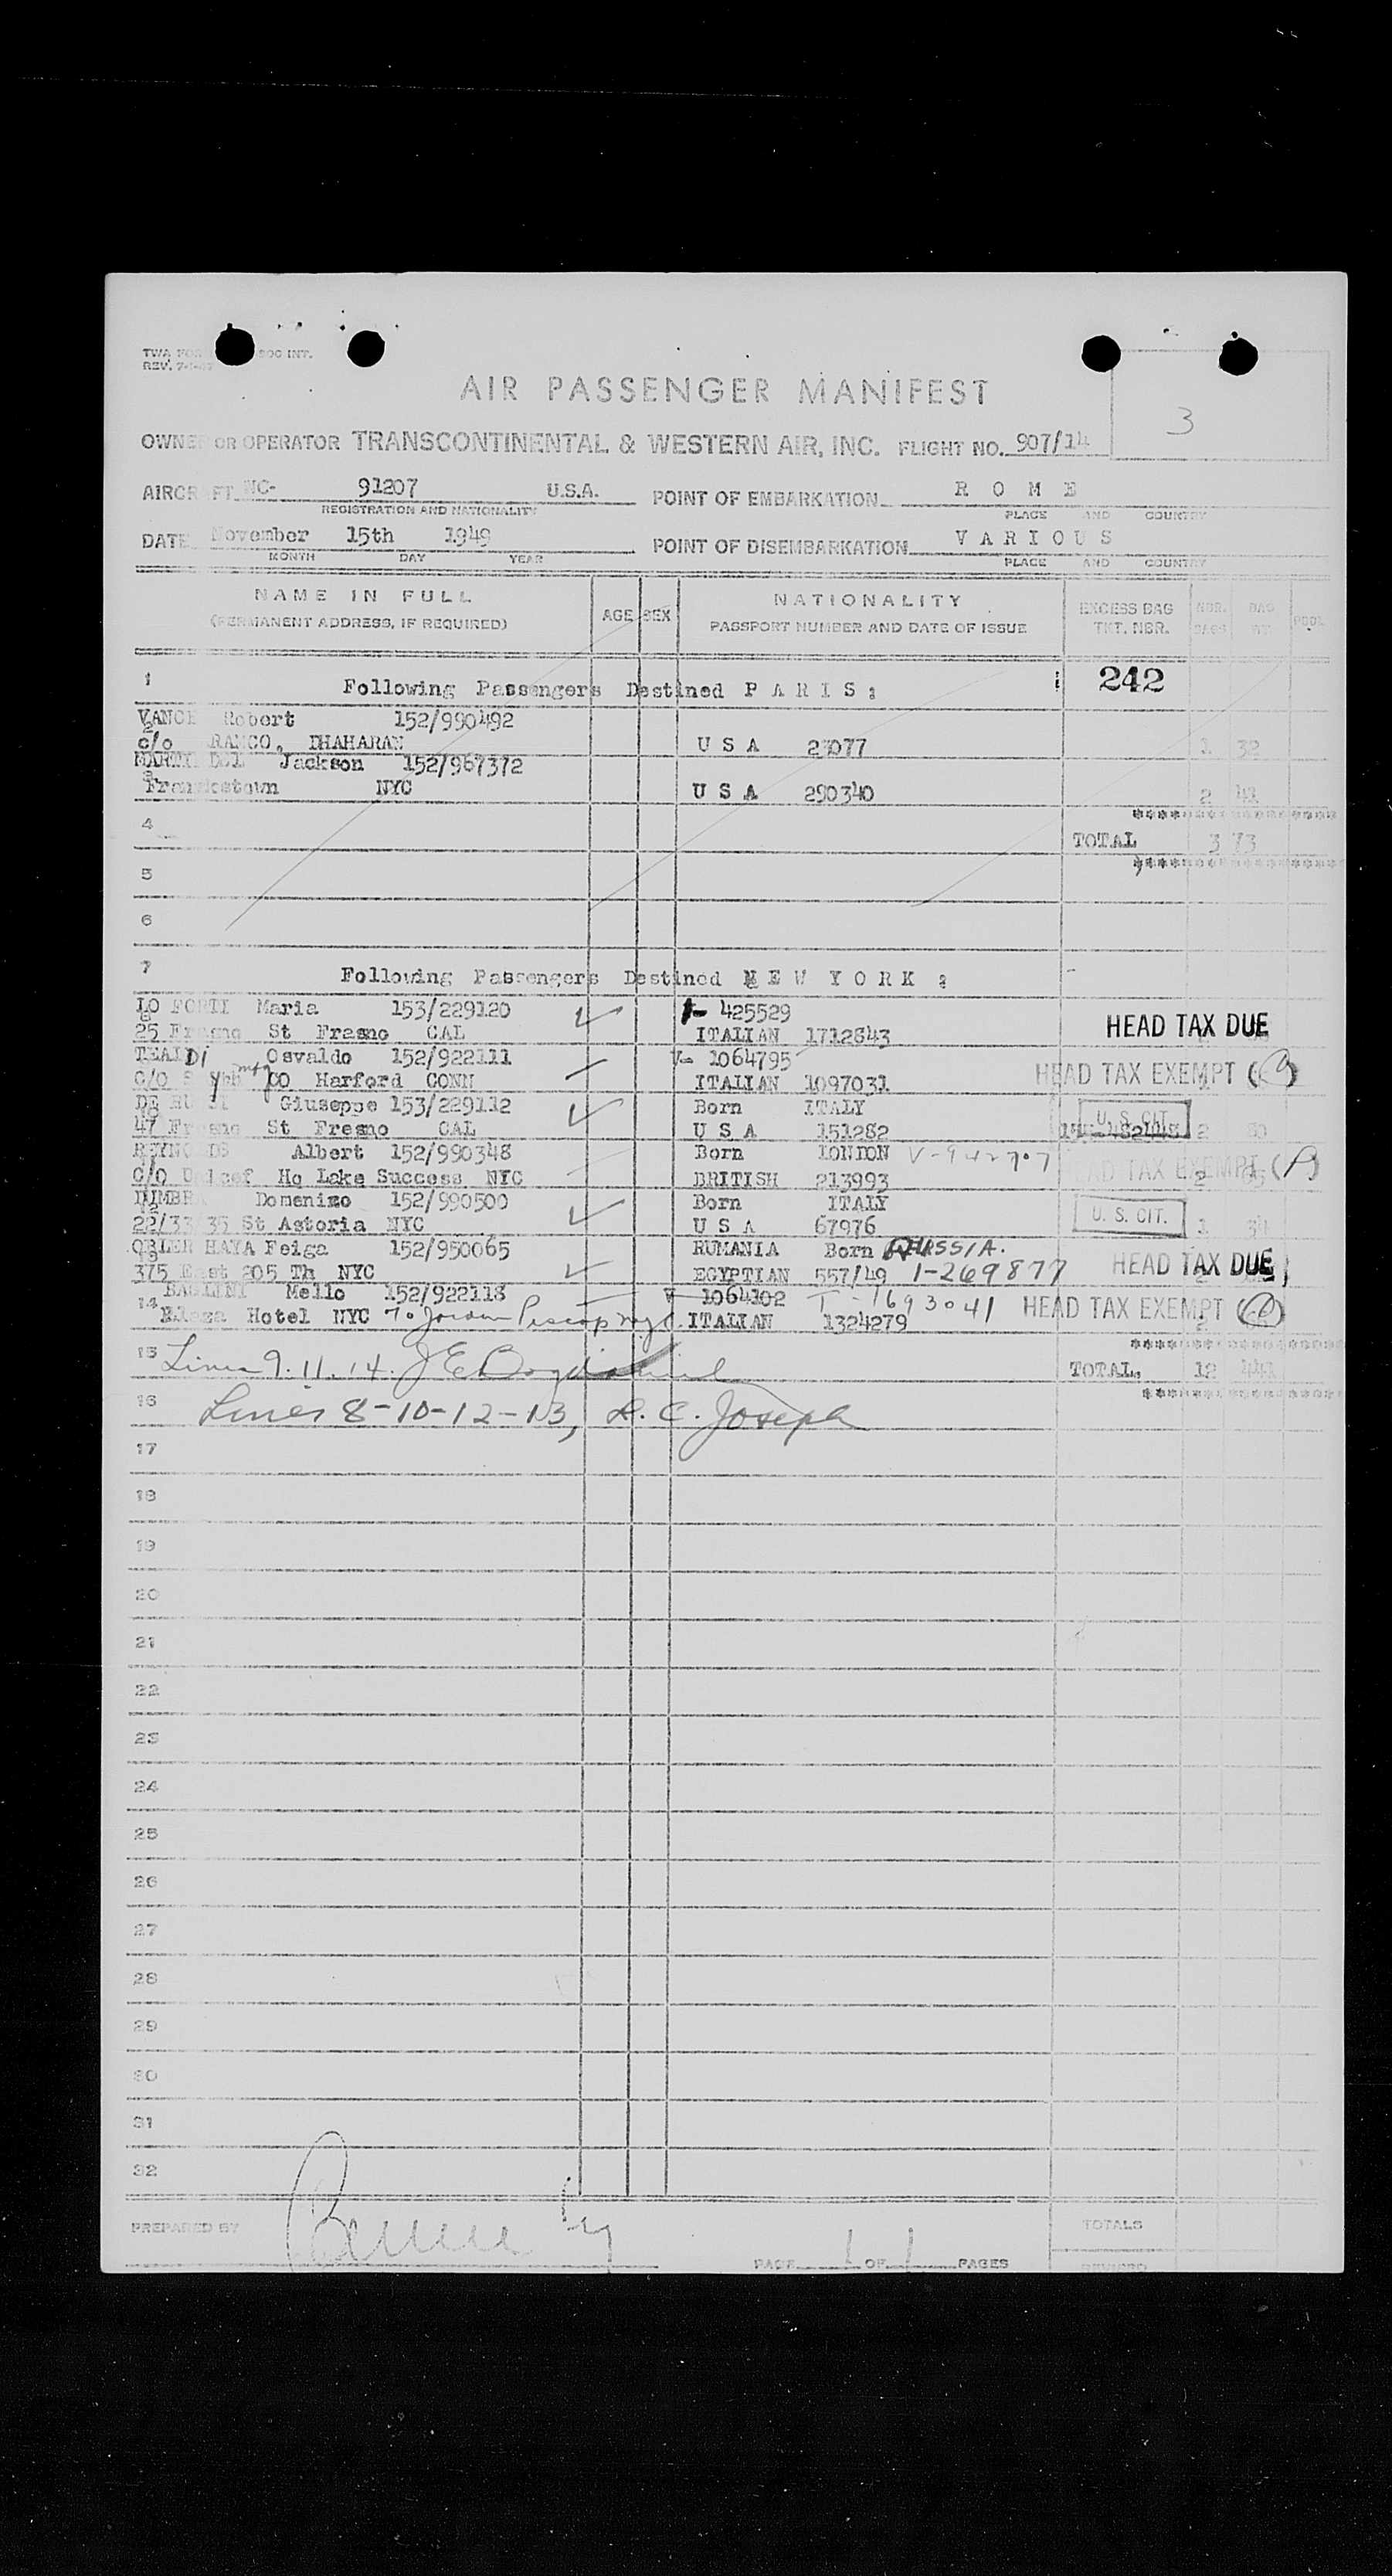 TWA FOR SOC INT.
REV.
AIR PASSENGER MANIFEST
3
OWNE OR OPERATOR TRANSCONTINENTAL & WESTERN AIR, INC. FLIGHT NO. 907/14
AIRCR FT NC- 91207 U.S.A. POINT OF EMBARKATION R O M E
REGISTRATION AND NATIONALITY PLACE AND COUNTRY
DATE November 15th 1949 POINT OF DISEMBARKATION V A R I O U S
MONTH DAY YEAR PLACE AND COUNTRY
NAME IN FULL
(PERMANENT ADDRESS, IF REQUIRED)
AGE SEX
NATIONALITY
PASSPORT NUMBER AND DATE OF ISSUE
EXCESS BAG
TKT. NBR.
NBR.
BAGS
BAG
WT.
POOL
1 Following Passengers Destined P A R I S : 242
VANCE Robert 152/990492
2
c/o RAMCO, DHAHARAN U S A 23077 1 32
Jackson 152/967372
3
NYC U S A 290340 2 41
4 TOTAL 3 73
5
6
7 Following Passengers Destined N E W Y O R K :
LO FORTI Maria 153/229120 425529
8
25 Fresno St Fresno CAL ITALIAN 1712843 HEAD TAX DUE
Di Osvaldo 152/922111 V- 1064795
C/O mfg CO Harford CONN ITALIAN 1097031 HEAD TAX EXEMPT
DE Giuseppe 153/229112 Born ITALY
10
47 Fresno St Fresno CAL U S A 151282 U. S. CIT. 2 80
REYNOLDS Albert 152/990348 Born LONDON V-942707
11
C/O Unicef Hq Lake Success NYC BRITISH 213993 HEAD TAX EXEMPT (P) 2
Domenico 152/990500 Born ITALY
12
22/33 35 St Astoria NYC U S A 67976 U. S. CIT. 1 34
HAYA Feiga 152/950065 RUMANIA Born RUSSIA.
13
375 East 205 Th NYC EGYPTIAN 557/49 1-269877 HEAD TAX DUE
Mello 152/922118 V 1064102 T-1693041
14
Hotel NYC To ITALIAN 1324279 HEAD TAX EXEMPT
15 Lines 9.11.14. TOTAL. 12
16 Lines 8-10-12-13, L. C. Joseph
17
18
19
20
21
22
23
24
25
26
27
28
29
30
31
32
PREPARED BY
PAGE 1 OF 1 PAGES
TOTALS